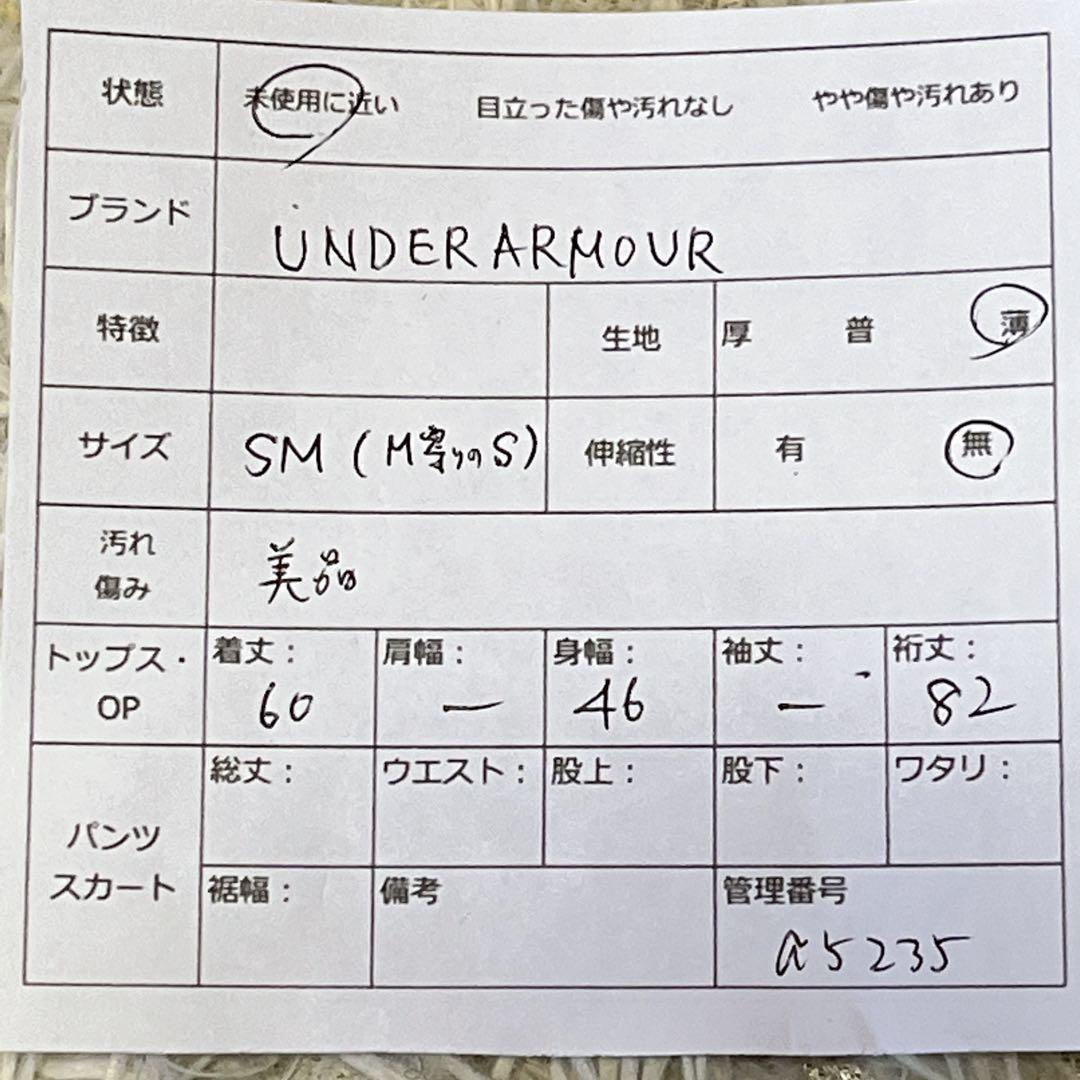 状態 未使用に近い 目立った傷や汚れなし やや傷や汚れあり
ブランド UNDER ARMOUR
特徴 生地 厚 普 薄
サイズ SM (M寄りのS) 伸縮性 有 無
汚れ
傷み 美品
トップス・
OP
着丈: 肩幅: 身幅: 袖丈: 裄丈:
60 — 46 — 82
パンツ
スカート
総丈: ウエスト: 股上: 股下: ワタリ:
裾幅: 備考 管理番号
a5235